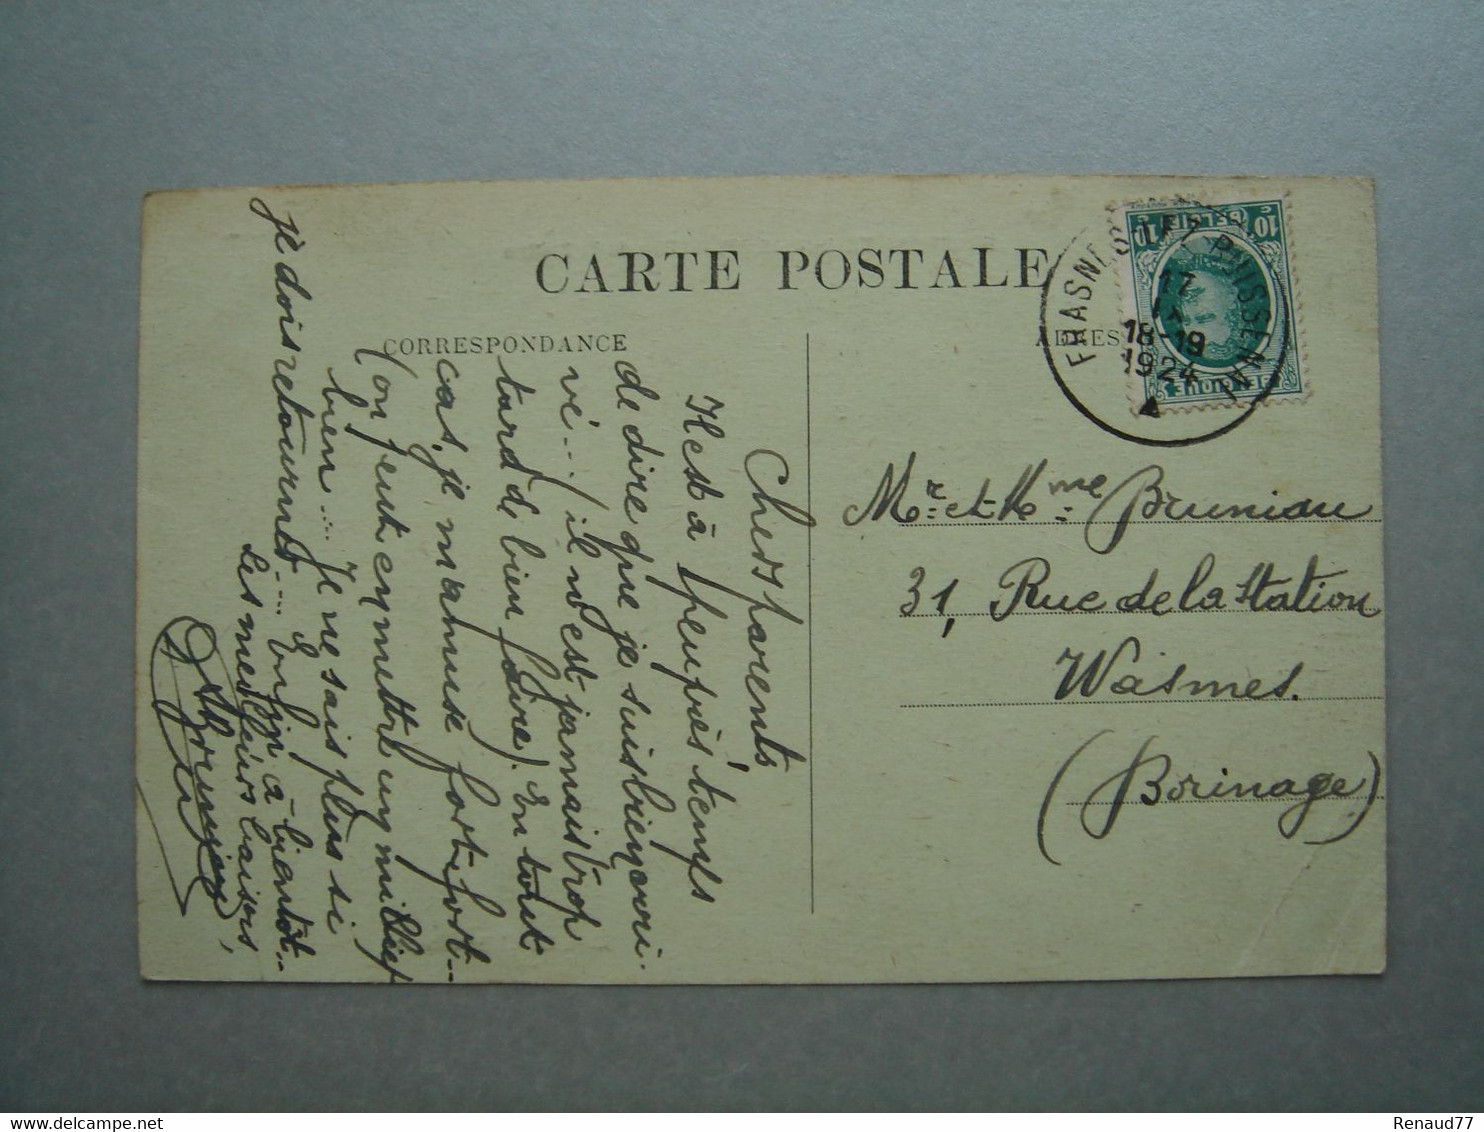 CARTE POSTALE
CORRESPONDANCE
Chers parents
Il est à peu près temps
de dire que je suis bien arri-
vé... (il n'est jamais trop
tard de bien faire). En tout
cas, je m'amuse fort, fort...
(on peut en mettre un millier)
bien... Je ne sais plus si
je dois retourner... Enfin à bientôt...
Les meilleurs baisers,
FRASNES LEZ BUISSENAL
17
18-19
1924
BELGIË
BELGIQUE
10 C
10 C
Mr. et Mme Bruniau
31, Rue de la Station
Wasmes.
(Borinage)
delcampe.net
Renaud77